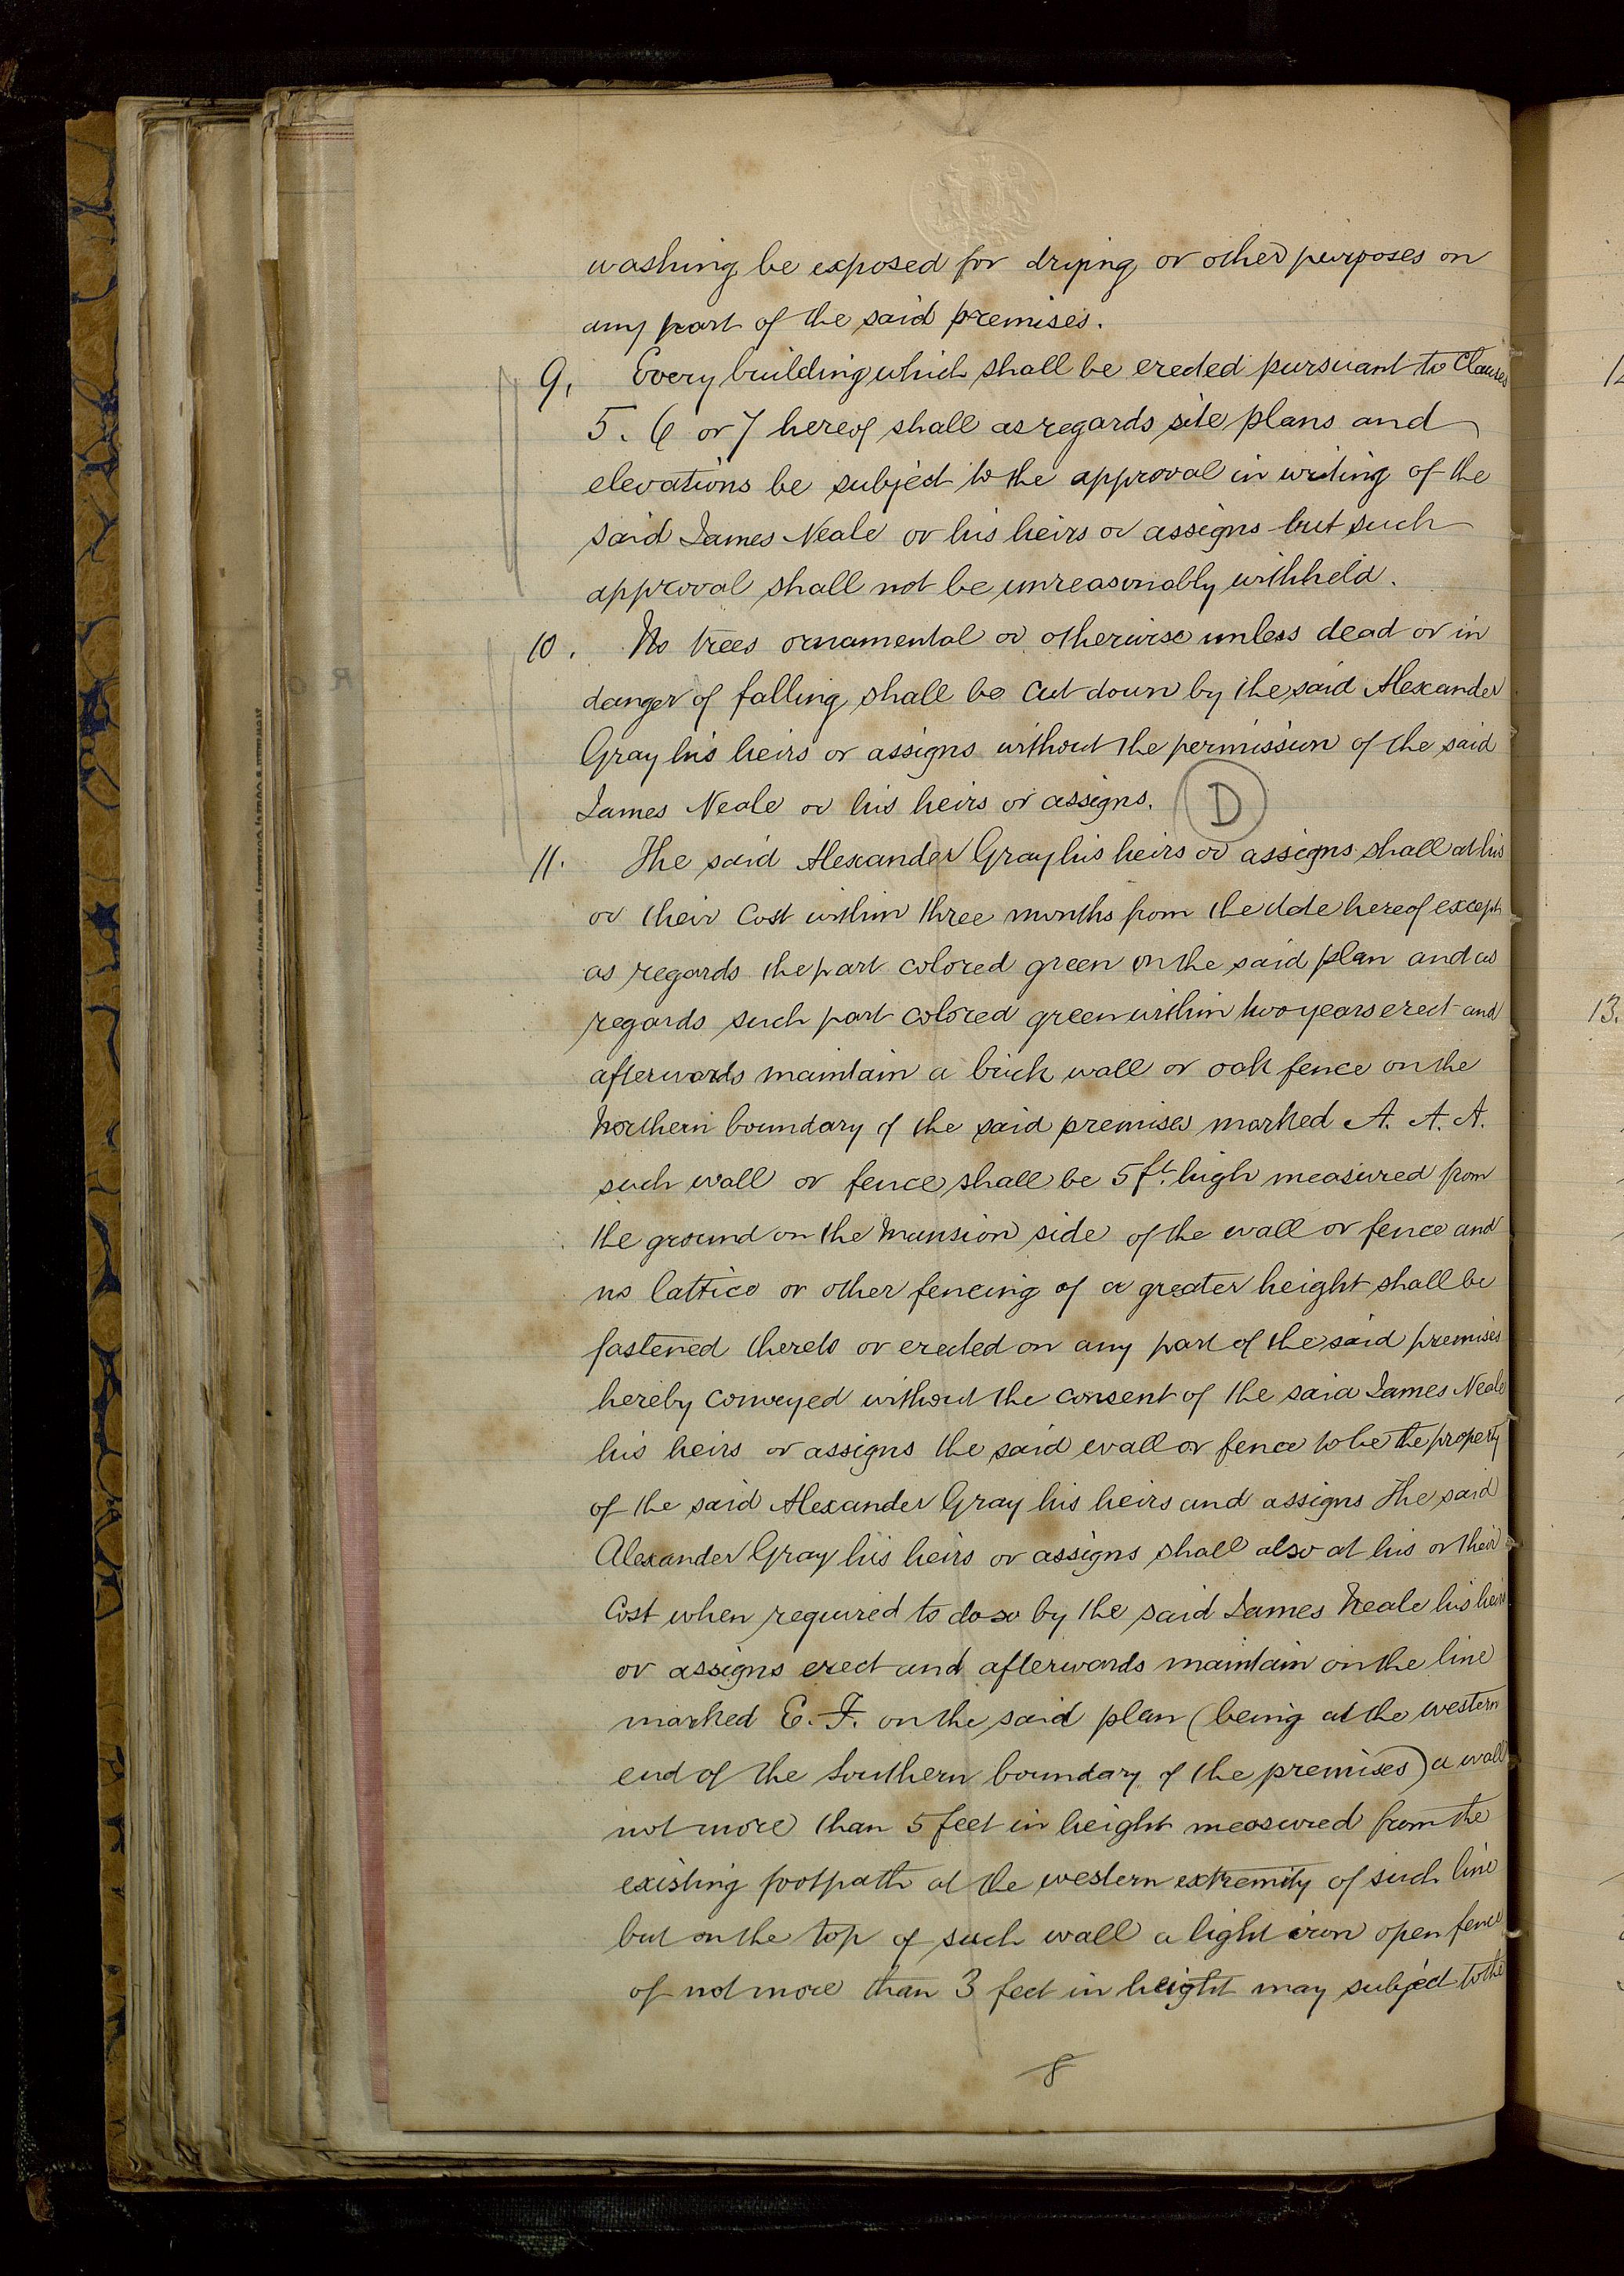 washing be exposed for drying or other purposes on
any part of the said premises.
9. Every building which shall be erected pursuant to Clauses
5. 6 or 7 hereof shall as regards site plans and
elevations be subject to the approval in writing of the
said James Neale or his heirs or assigns but such
approval shall not be unreasonably withheld.
10. No trees ornamental or otherwise unless dead or in
danger of falling shall be cut down by the said Alexander
Gray his heirs or assigns without the permission of the said
James Neale or his heirs or assigns. D
11. The said Alexander Gray his heirs or assigns shall at his
or their cost within three months from the date hereof except
as regards the part colored green on the said plan and as
regards such part colored green within two years erect and
afterwards maintain a brick wall or oak fence on the
Northern boundary of the said premises marked A. A. A.
such wall or fence shall be 5 ft. high measured from
the ground on the Mansion side of the wall or fence and
no lattice or other fencing of a greater height shall be
fastened thereto or erected on any part of the said premises
hereby conveyed without the consent of the said James Neale
his heirs or assigns the said wall or fence to be the property
of the said Alexander Gray his heirs and assigns The said
Alexander Gray his heirs or assigns shall also at his or their
Cost when required to do so by the said James Neale his heirs
or assigns erect and afterwards maintain on the line
marked E. F. on the said plan (being at the western
end of the Southern boundary of the premises) a wall
not more than 5 feet in height measured from the
existing footpath at the western extremity of such line
but on the top of such wall a light iron open fence
of not more than 3 feet in height may subject to the
8
13.